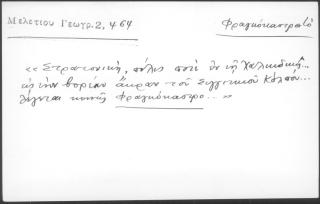 Μελετίου Γεωγρ. 2, 464
Φραγκόκαστρο, τὸ
« Στρατονίκη, πόλις ποτὲ ἐν τῇ Χαλκιδικῇ...
εἰς τὴν βορείαν ἄκραν τοῦ Σιγγιτικοῦ Κόλπου...
λέγεται κοινῶς Φραγκόκαστρο... »